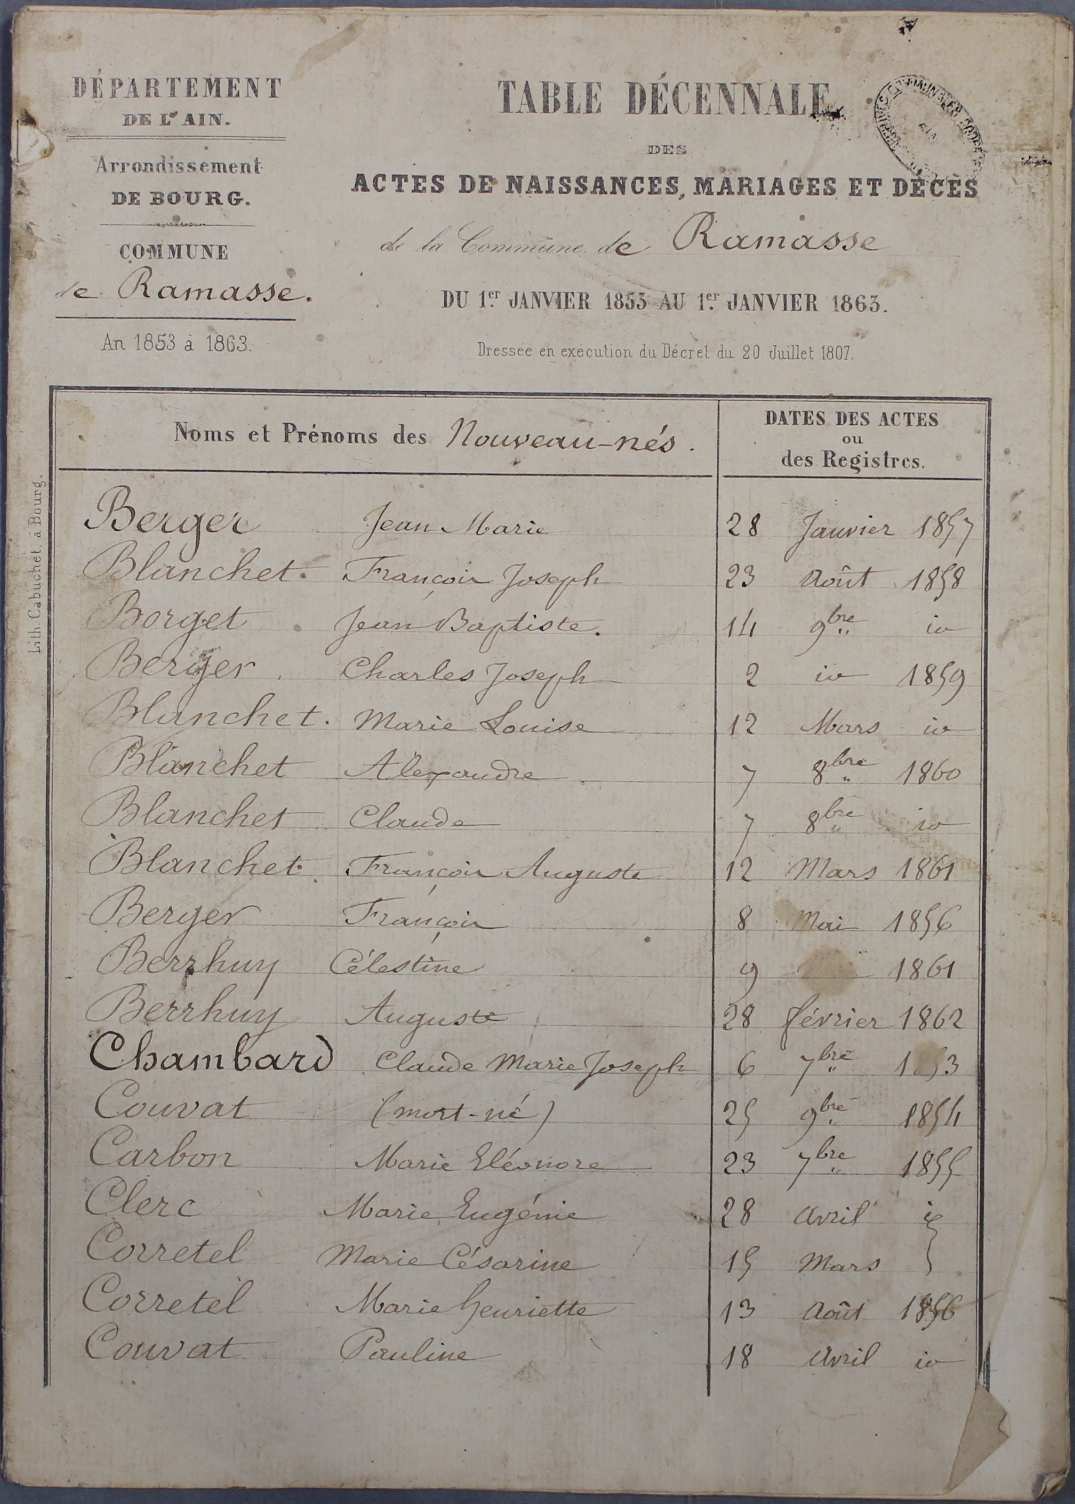 DÉPARTEMENT
DE L'AIN.
Arrondissement
DE BOURG.
COMMUNE
de Ramasse.
An 1853 à 1863.
TABLE DÉCENNALE
DES
ACTES DE NAISSANCES, MARIAGES ET DÉCÈS
de la Commune de Ramasse
DU 1er JANVIER 1853 AU 1er JANVIER 1863.
Dressée en execution du Décret du 20 Juillet 1807.
Lith. Cabuchet à Bourg.
Noms et Prénoms des Nouveau-nés.
DATES DES ACTES
ou
des Registres.
Berger Jean Marie 28 Janvier 1857
Blanchet François Joseph 23 Août 1858
Borget Jean Baptiste. 14 9bre id
Berger Charles Joseph 2 id 1859
Blanchet. Marie Louise 12 Mars id
Blanchet Alexandre 7 8bre 1860
Blanchet Claude 7 8bre id
Blanchet François Auguste 12 Mars 1861
Berger François 8 Mai 1856
Berrhuy Célestine 9 1861
Berrhuy Auguste 28 février 1862
Chambard Claude Marie Joseph 6 7bre 1853
Couvat (mort-né) 25 9bre 1854
Carbon Marie Eléonore 23 7bre 1855
Clerc Marie Eugénie 28 Avril
Corretel Marie Césarine 15 Mars
Corretel Marie henriette 13 Août 1856
Couvat Pauline 18 Avril id